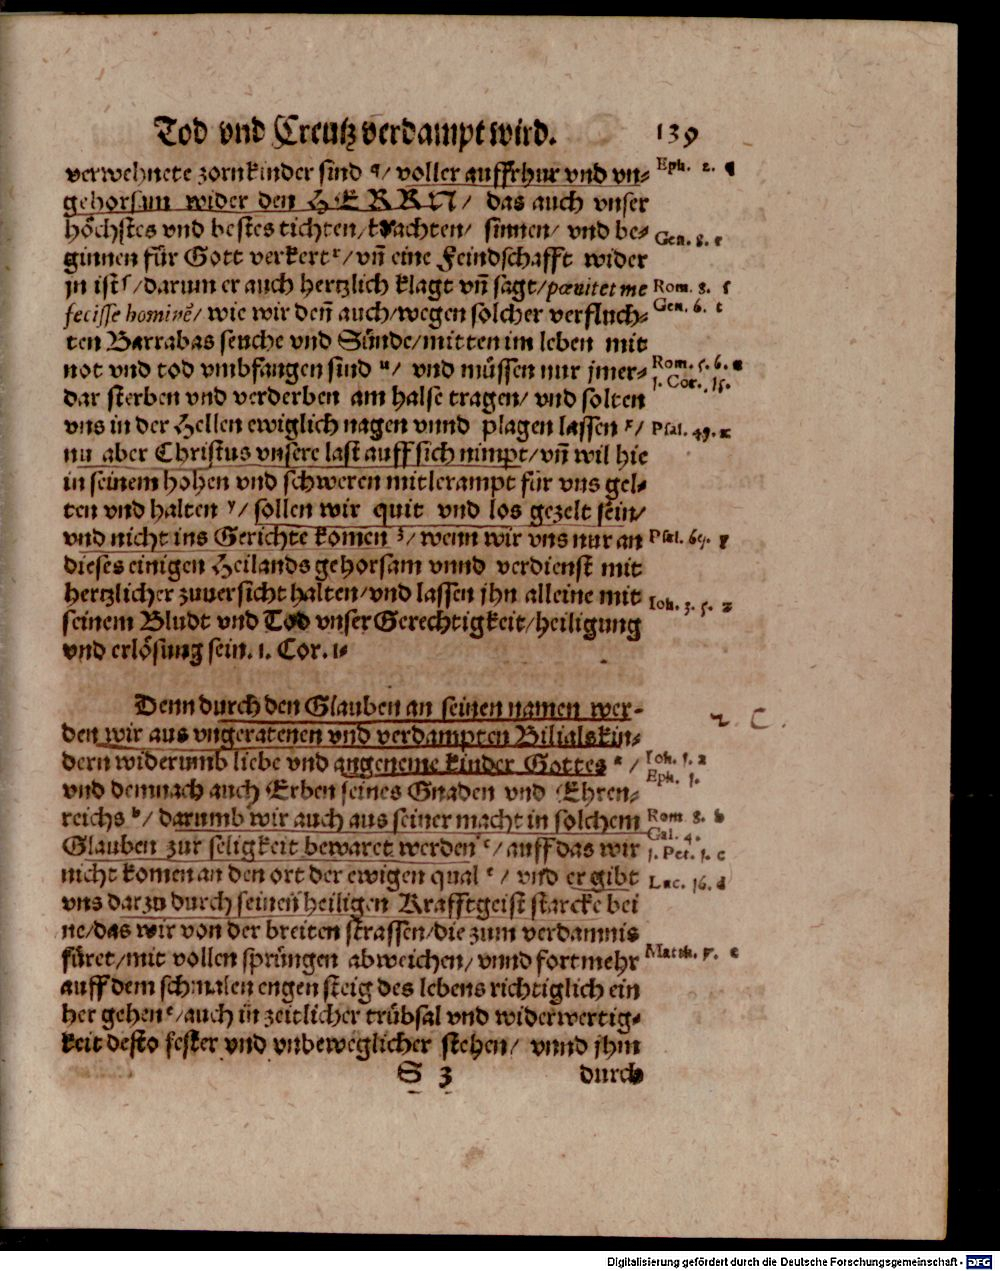 Tod vnd Creutz verdampt wird. 139
verwehnete zornkinder sind q/ voller auffrhur vnd vn- Eph. 2. q
gehorsam wider den HERRN/ das auch vnser
höchstes vnd bestes tichten/ trachten/ sinnen/ vnd be- Gen. 8. r
ginnen für Gott verkert r/ vñ eine Feindschafft wider
jn ist s/ darum er auch hertzlich klagt vñ sagt/ pœnitet me Rom. 8. s
fecisse hominẽ/ wie wir deñ auch/ wegen solcher verfluch- Gen. 6. t
ten Barrabas seuche vnd Sünde/ mitten im leben mit
not vnd tod vmbfangen sind u/ vnd müssen nur jmer- Rom. 5. 6. u
dar sterben vnd verderben am halse tragen/ vnd solten 1. Cor. 15.
vns in der Hellen ewiglich nagen vnnd plagen lassen x/ Psal. 49. x
nu aber Christus vnsere last auff sich nimpt/ vñ wil hie
in seinem hohen vnd schweren mitlerampt für vns gel-
ten vnd halten y/ sollen wir quit vnd los gezelt sein/
vnd nicht ins Gerichte komen z/ wenn wir vns nur an Psal. 69. y
dieses einigen Heilands gehorsam vnnd verdienst mit
hertzlicher zuuersicht halten/ vnd lassen jhn alleine mit Ioh. 3. 5. z
seinem Bludt vnd Tod vnser Gerechtigkeit/ heiligung
vnd erlösung sein. 1. Cor. 1.
Denn durch den Glauben an seinen namen wer-
den wir aus vngeratenen vnd verdampten Bilialskin-
dern widerumb liebe vnd angeneme kinder Gottes a/ Ioh. 1. a
vnd demnach auch Erben seines Gnaden vnd Ehren- Eph. 1.
reichs b/ darumb wir auch aus seiner macht in solchem Rom. 8. b
Glauben zur seligkeit bewaret werden c/ auff das wir Gal. 4.
1. Pet. 1. c
nicht komen an den ort der ewigen qual d/ vnd er gibt Luc. 16. d
vns darzu durch seinen heiligen Krafftgeist starcke bei
ne/ das wir von der breiten strassen/ die zum verdamnis
füret/ mit vollen sprüngen abweichen/ vnnd fort mehr Matth. 7. e
auff dem schmalen engen steig des lebens richtiglich ein
her gehen e/ auch in zeitlicher trübsal vnd widerwertig-
keit desto fester vnd vnbeweglicher stehen/ vnnd jhm
S 3 durch
Digitalisierung gefördert durch die Deutsche Forschungsgemeinschaft - DFG